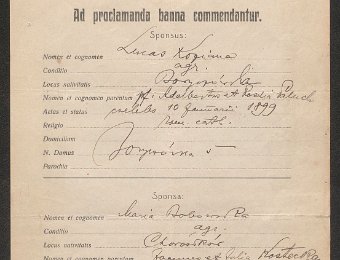 Ad proclamanda banna commendantur.
Sponsus:
Nomen et cognomen Lucas
Conditio agr.
Locus nativitatis
Nomen et cognomen parentum Adalbertus et
Aetas et status caelebs 10 Januarii 1899
Religio rom. cath.
Domicilium
N. Domus 5
Parochia
Sponsa:
Nomen et cognomen Maria
Conditio agr.
Locus nativitatis Chorostków
Nomen et cognomen parentum et Julia Kostecka